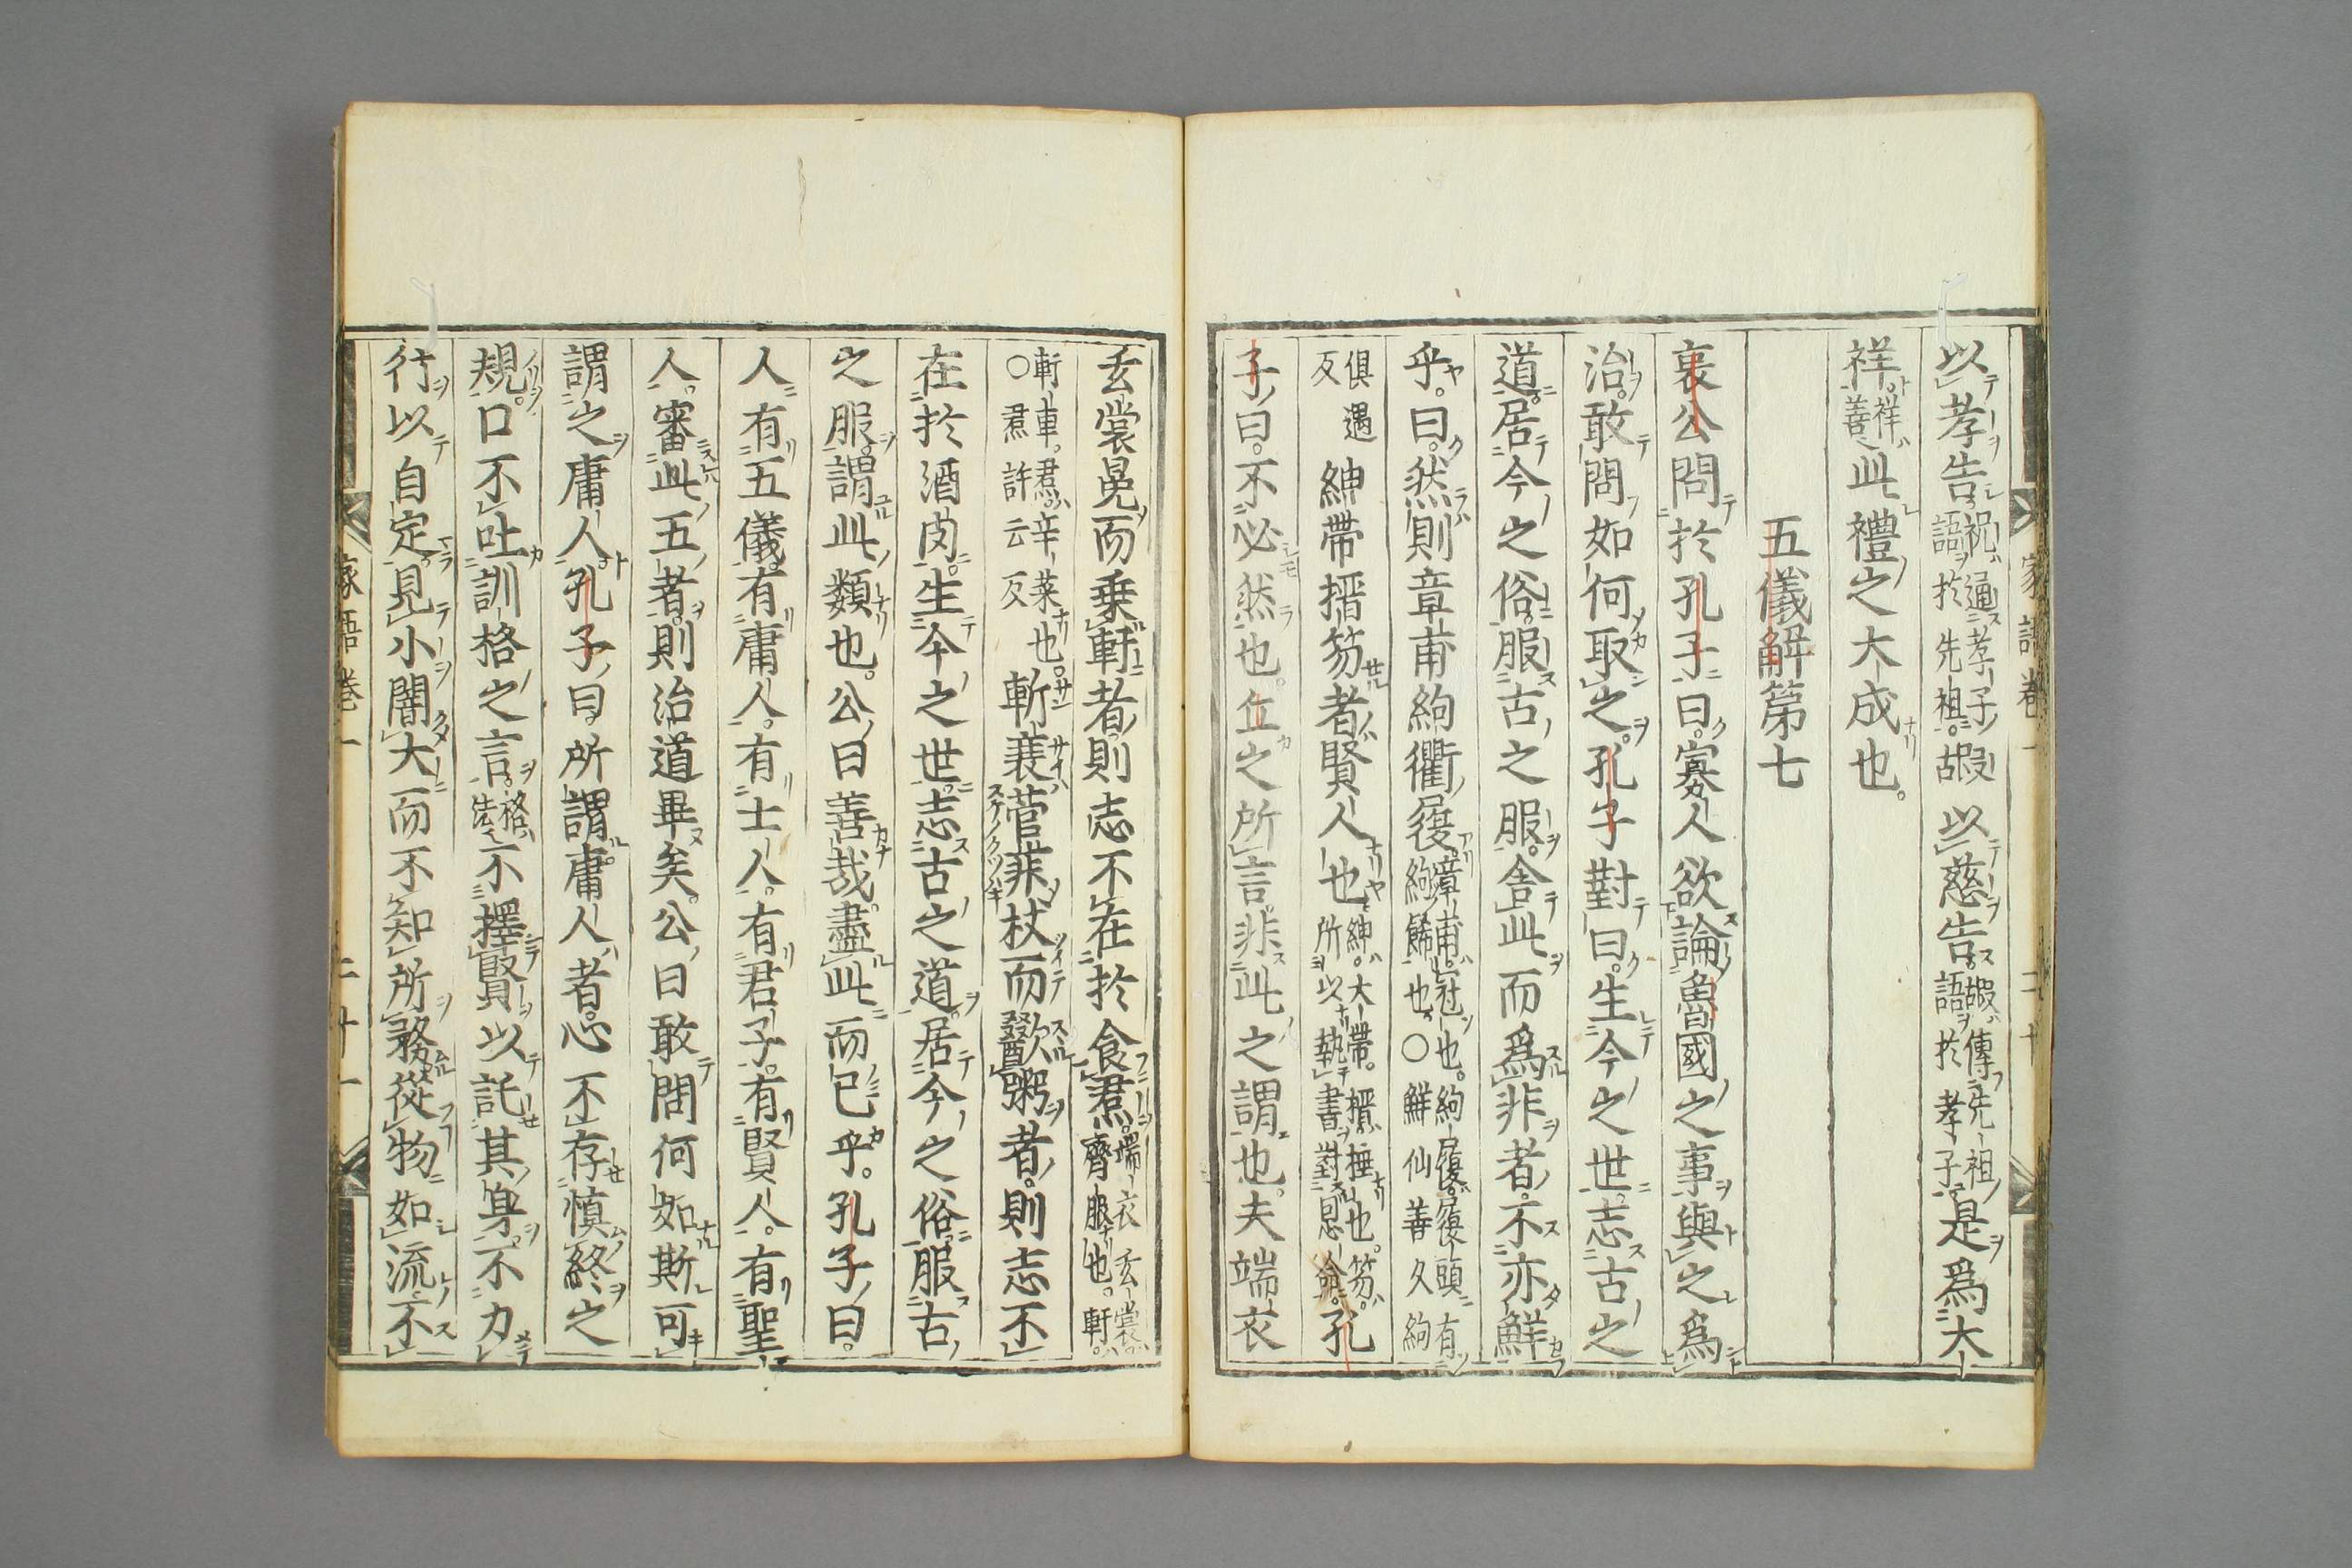 以孝告祝通孝子語於先祖嘏古以慈告嘏傳先祖語於孝子是爲大
祥祥善也此禮之大成也。
五儀解第七
哀公問於孔子曰。寡人欲論魯國之事與之爲
治。敢問如何取之。孔子對曰。生今之世。志古之
道。居今之俗。服古之服。舎此而爲非者。不亦鮮
乎。曰。然則章甫絇衢履。章甫冠也。絇履履頭有絇餙也。○鮮仙善久絇
俱遇反紳帶搢笏者賢人也紳。大帶。搢。插也。笏。所以執書對思命。孔
子曰。不必然也。丘之所言。非此之謂也。夫端衣
玄裳冕而乗軒者則志不在於食焄。端衣玄裳齊服也。軒。
軒車。焄。辛菜也。○焄許云反斬衰菅菲杖而歠粥者。則志不
在於酒肉。生今之世。志古之道。居今之俗。服古
之服。謂此類也。公曰善哉。盡此而已乎。孔子曰。
人有五儀。有庸人。有士人。有君子。有賢人。有聖
人。審此五者。則治道畢矣。公曰敢問何如斯可
謂之庸人。孔子曰。所謂庸人者。心不存慎終之
規。口不吐訓格之言。格法不擇賢以託其身。不力
行以自定。見小闇大而不知所務。從物如流。不
家語卷一
二十
家語卷一
二十一